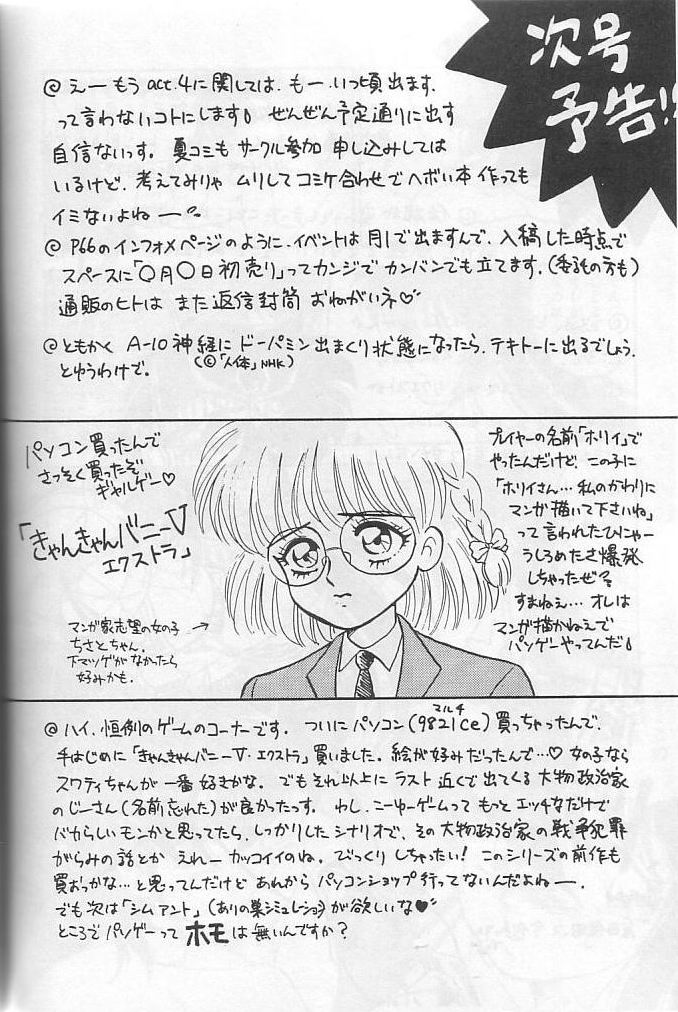 次号
予告!!
@ えーもう act.4に関しては、もー、いつ頃出ます、
って言わないコトにします。ぜんぜん予定通りに出す
自信ないっす。夏コミも サークル参加 申し込みしては
いるけど、考えてみりゃ ムリしてコミケ合わせで ヘボい本 作っても
イミないよねー。
@ P66のインフォメページのように、イベントは 月1で出ますんで、入稿した時点で
スペースに「○月○日初売り」ってカンジで カンバンでも立てます。(委託の方も)
通販のヒトは また返信封筒 おねがいネ♡
@ ともかく A-10神経に ドーパミン出まくり状態になったら、テキトーに出るでしょう、
(©「人体」NHK)
とゆうわけで。
パソコン買ったんで
さっそく買ったぞ
ギャルゲー♡
「きゃんきゃんバニーV
エクストラ」
マンガ家志望の女の子 →
ちさとちゃん。
下マツゲがなかったら
好みかも。
プレイヤーの名前「ホリイ」で
やったんだけど、この子に
「ホリイさん…私のかわりに
マンガ描いて下さいね」
って言われたひにゃー
うしろめたさ爆発
しちゃったぜ
すまねえ…オレは
マンガ描かねえで
パソゲーやってんだ
@ ハイ、恒例のゲームのコーナーです。ついにパソコン(9821Ce)買っちゃったんで、
マルチ
手はじめに「きゃんきゃんバニーV・エクストラ」買いました。絵が好みだったんで…♡ 女の子なら
スワティちゃんが一番好きかな。でもそれ以上に ラスト近くで出てくる 大物政治家
のじーさん(名前忘れた)が良かったっす。わし、こーゆーゲームって もっとエッチなだけで
バカらしいモンかと思ってたら、しっかりしたシナリオで、その大物政治家の戦争犯罪
がらみの話とか えれーカッコイイのね。びっくりしちゃったい! このシリーズの前作も
買おっかな…と思ってんだけど あれからパソコンショップ行ってないんだよねー。
でも次は「シムアント」(ありの巣シミュレーション)が欲しいな♥
ところでパソゲーって ホモは無いんですか?